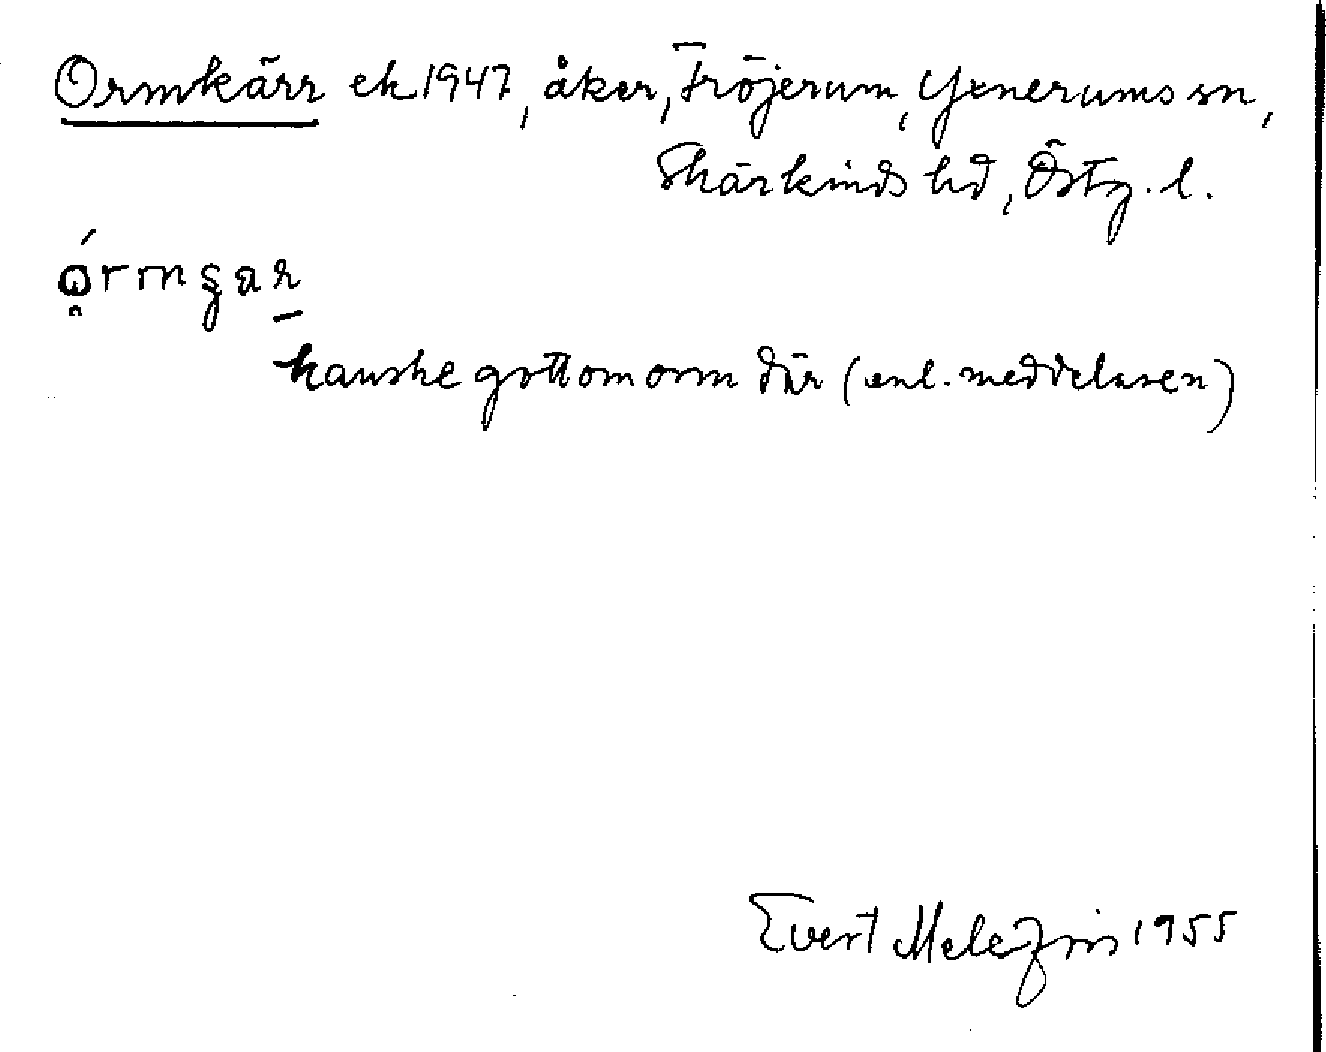 Ormkärr ek 1947, åker, Fröjerum, Yxnerums sn,
Skärkinds hd, Östg. l.
kanske gott om orm där (enl. meddelaren)
Evert Melefors 1955